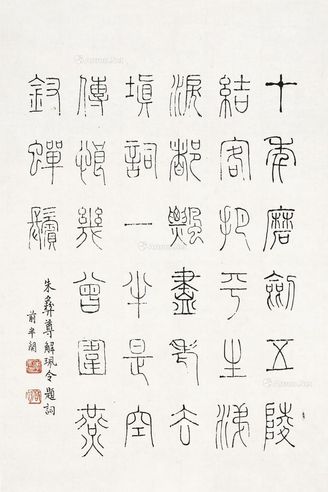 十年磨劍五陵
結客把平生涕
淚都飄盡老去
填詞一半是空
傳恨幾曾圍燕
釵蟬鬢
朱彝尊解珮令題詞
前半闋